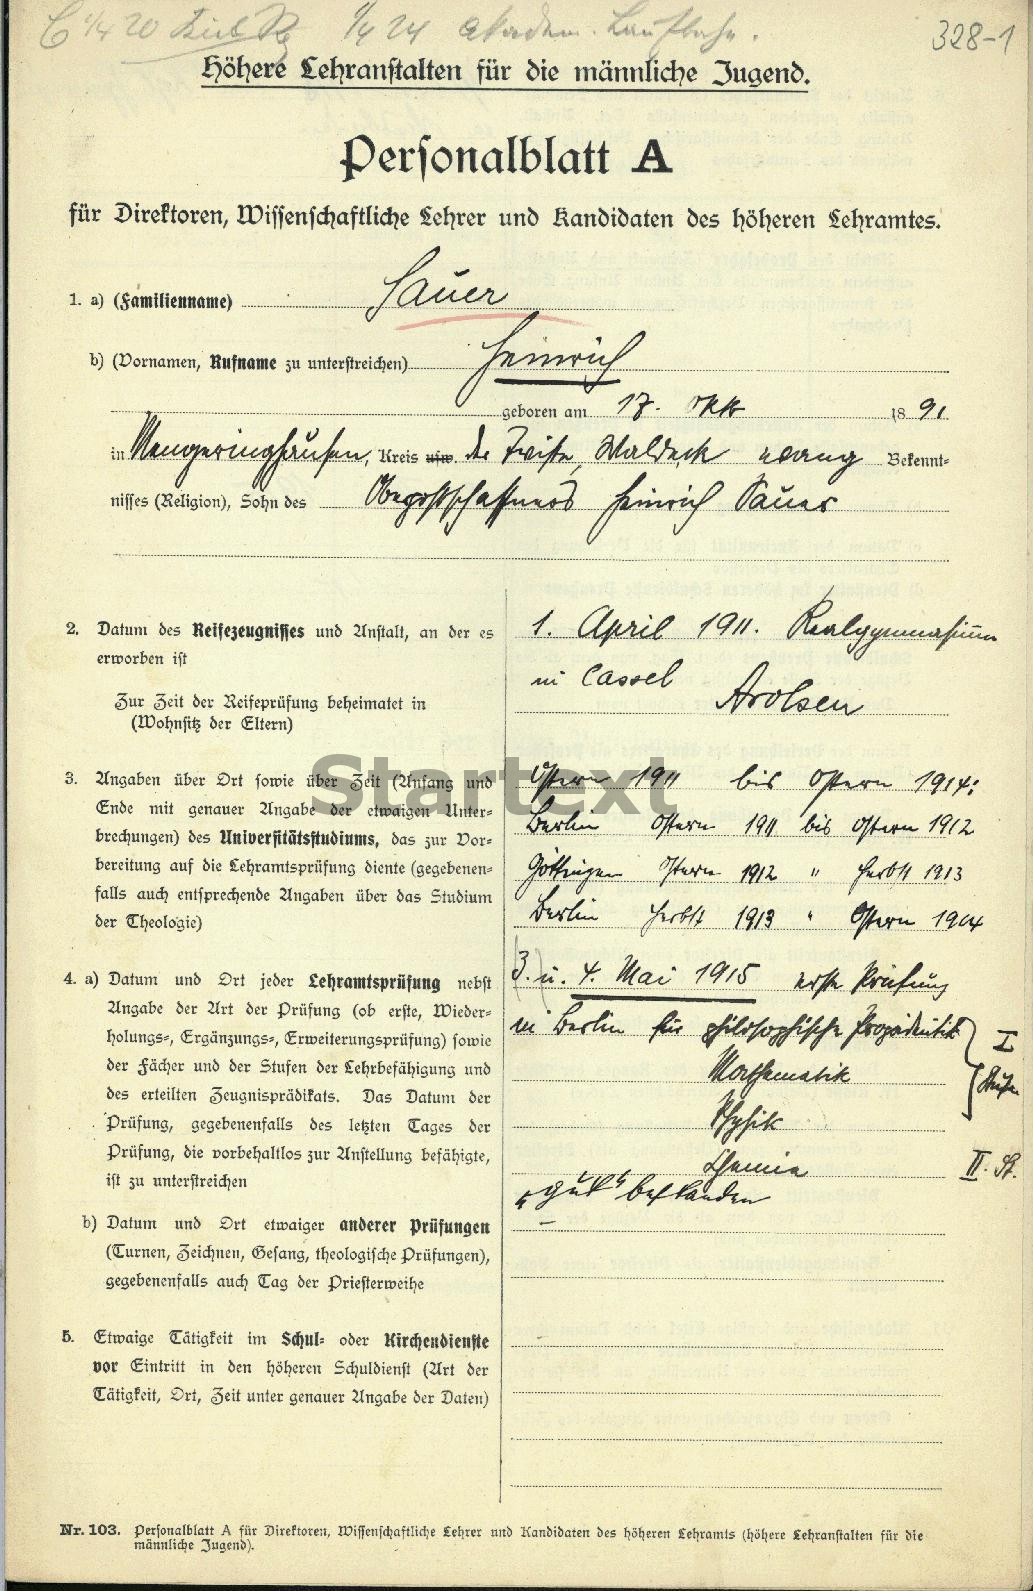 C 1/4 20 1/4 24 akadem. Laufbahn.
328-1
Höhere Lehranstalten für die männliche Jugend.
Personalblatt A
für Direktoren, Wissenschaftliche Lehrer und Kandidaten des höheren Lehramtes.
1. a) (Familienname) Sauer
b) (Vornamen, Rufname zu unterstreichen) Heinrich
geboren am 17. Okt 1891
in Mengeringhausen, Kreis usw. der Twiste, Waldeck evang Bekennt-
nisses (Religion), Sohn des Oberpostschaffners Heinrich Sauer
2. Datum des Reifezeugnisses und Anstalt, an der es
erworben ist
1. April 1911. Realgymnasium
in Cassel
Zur Zeit der Reifeprüfung beheimatet in
(Wohnsitz der Eltern)
Arolsen
3. Angaben über Ort sowie über Zeit (Anfang und
Ende mit genauer Angabe der etwaigen Unter-
brechungen) des Universitätsstudiums, das zur Vor-
bereitung auf die Lehramtsprüfung diente (gegebenen-
falls auch entsprechende Angaben über das Studium
der Theologie)
Ostern 1911 bis Ostern 1914:
Berlin Ostern 1911 bis Ostern 1912
Göttingen Ostern 1912 " Herbst 1913
Berlin Herbst 1913 " Ostern 1914
Startext
4. a) Datum und Ort jeder Lehramtsprüfung nebst
Angabe der Art der Prüfung (ob erste, Wieder-
holungs-, Ergänzungs-, Erweiterungsprüfung) sowie
der Fächer und der Stufen der Lehrbefähigung und
des erteilten Zeugnisprädikats. Das Datum der
Prüfung, gegebenenfalls des letzten Tages der
Prüfung, die vorbehaltlos zur Anstellung befähigte,
ist zu unterstreichen
(3. u.) 4. Mai 1915 erste Prüfung
in Berlin für philosophische Propädeutik
Mathematik
Physik
I Stufe
Chemie II. St.
"gut" bestanden
b) Datum und Ort etwaiger anderer Prüfungen
(Turnen, Zeichnen, Gesang, theologische Prüfungen),
gegebenenfalls auch Tag der Priesterweihe
5. Etwaige Tätigkeit im Schul- oder Kirchendienste
vor Eintritt in den höheren Schuldienst (Art der
Tätigkeit, Ort, Zeit unter genauer Angabe der Daten)
Nr. 103. Personalblatt A für Direktoren, Wissenschaftliche Lehrer und Kandidaten des höheren Lehramts (höhere Lehranstalten für die
männliche Jugend).